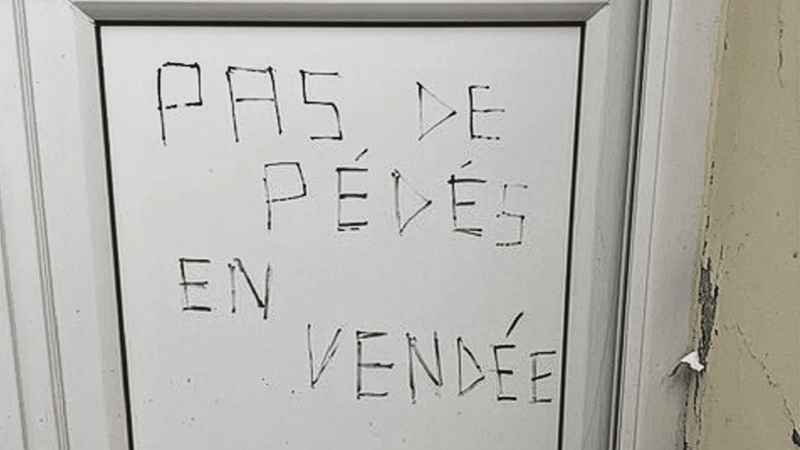 PAS DE
PÉDÉS
EN
VENDÉE